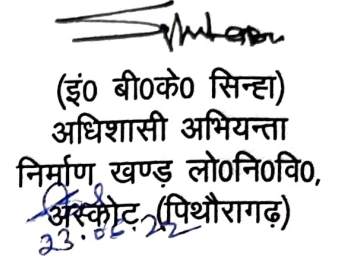 (इं0 बी0के0 सिन्हा)
अधिशासी अभियन्ता
निर्माण खण्ड़ लो0नि0वि0,
अस्कोट (पिथौरागढ़)